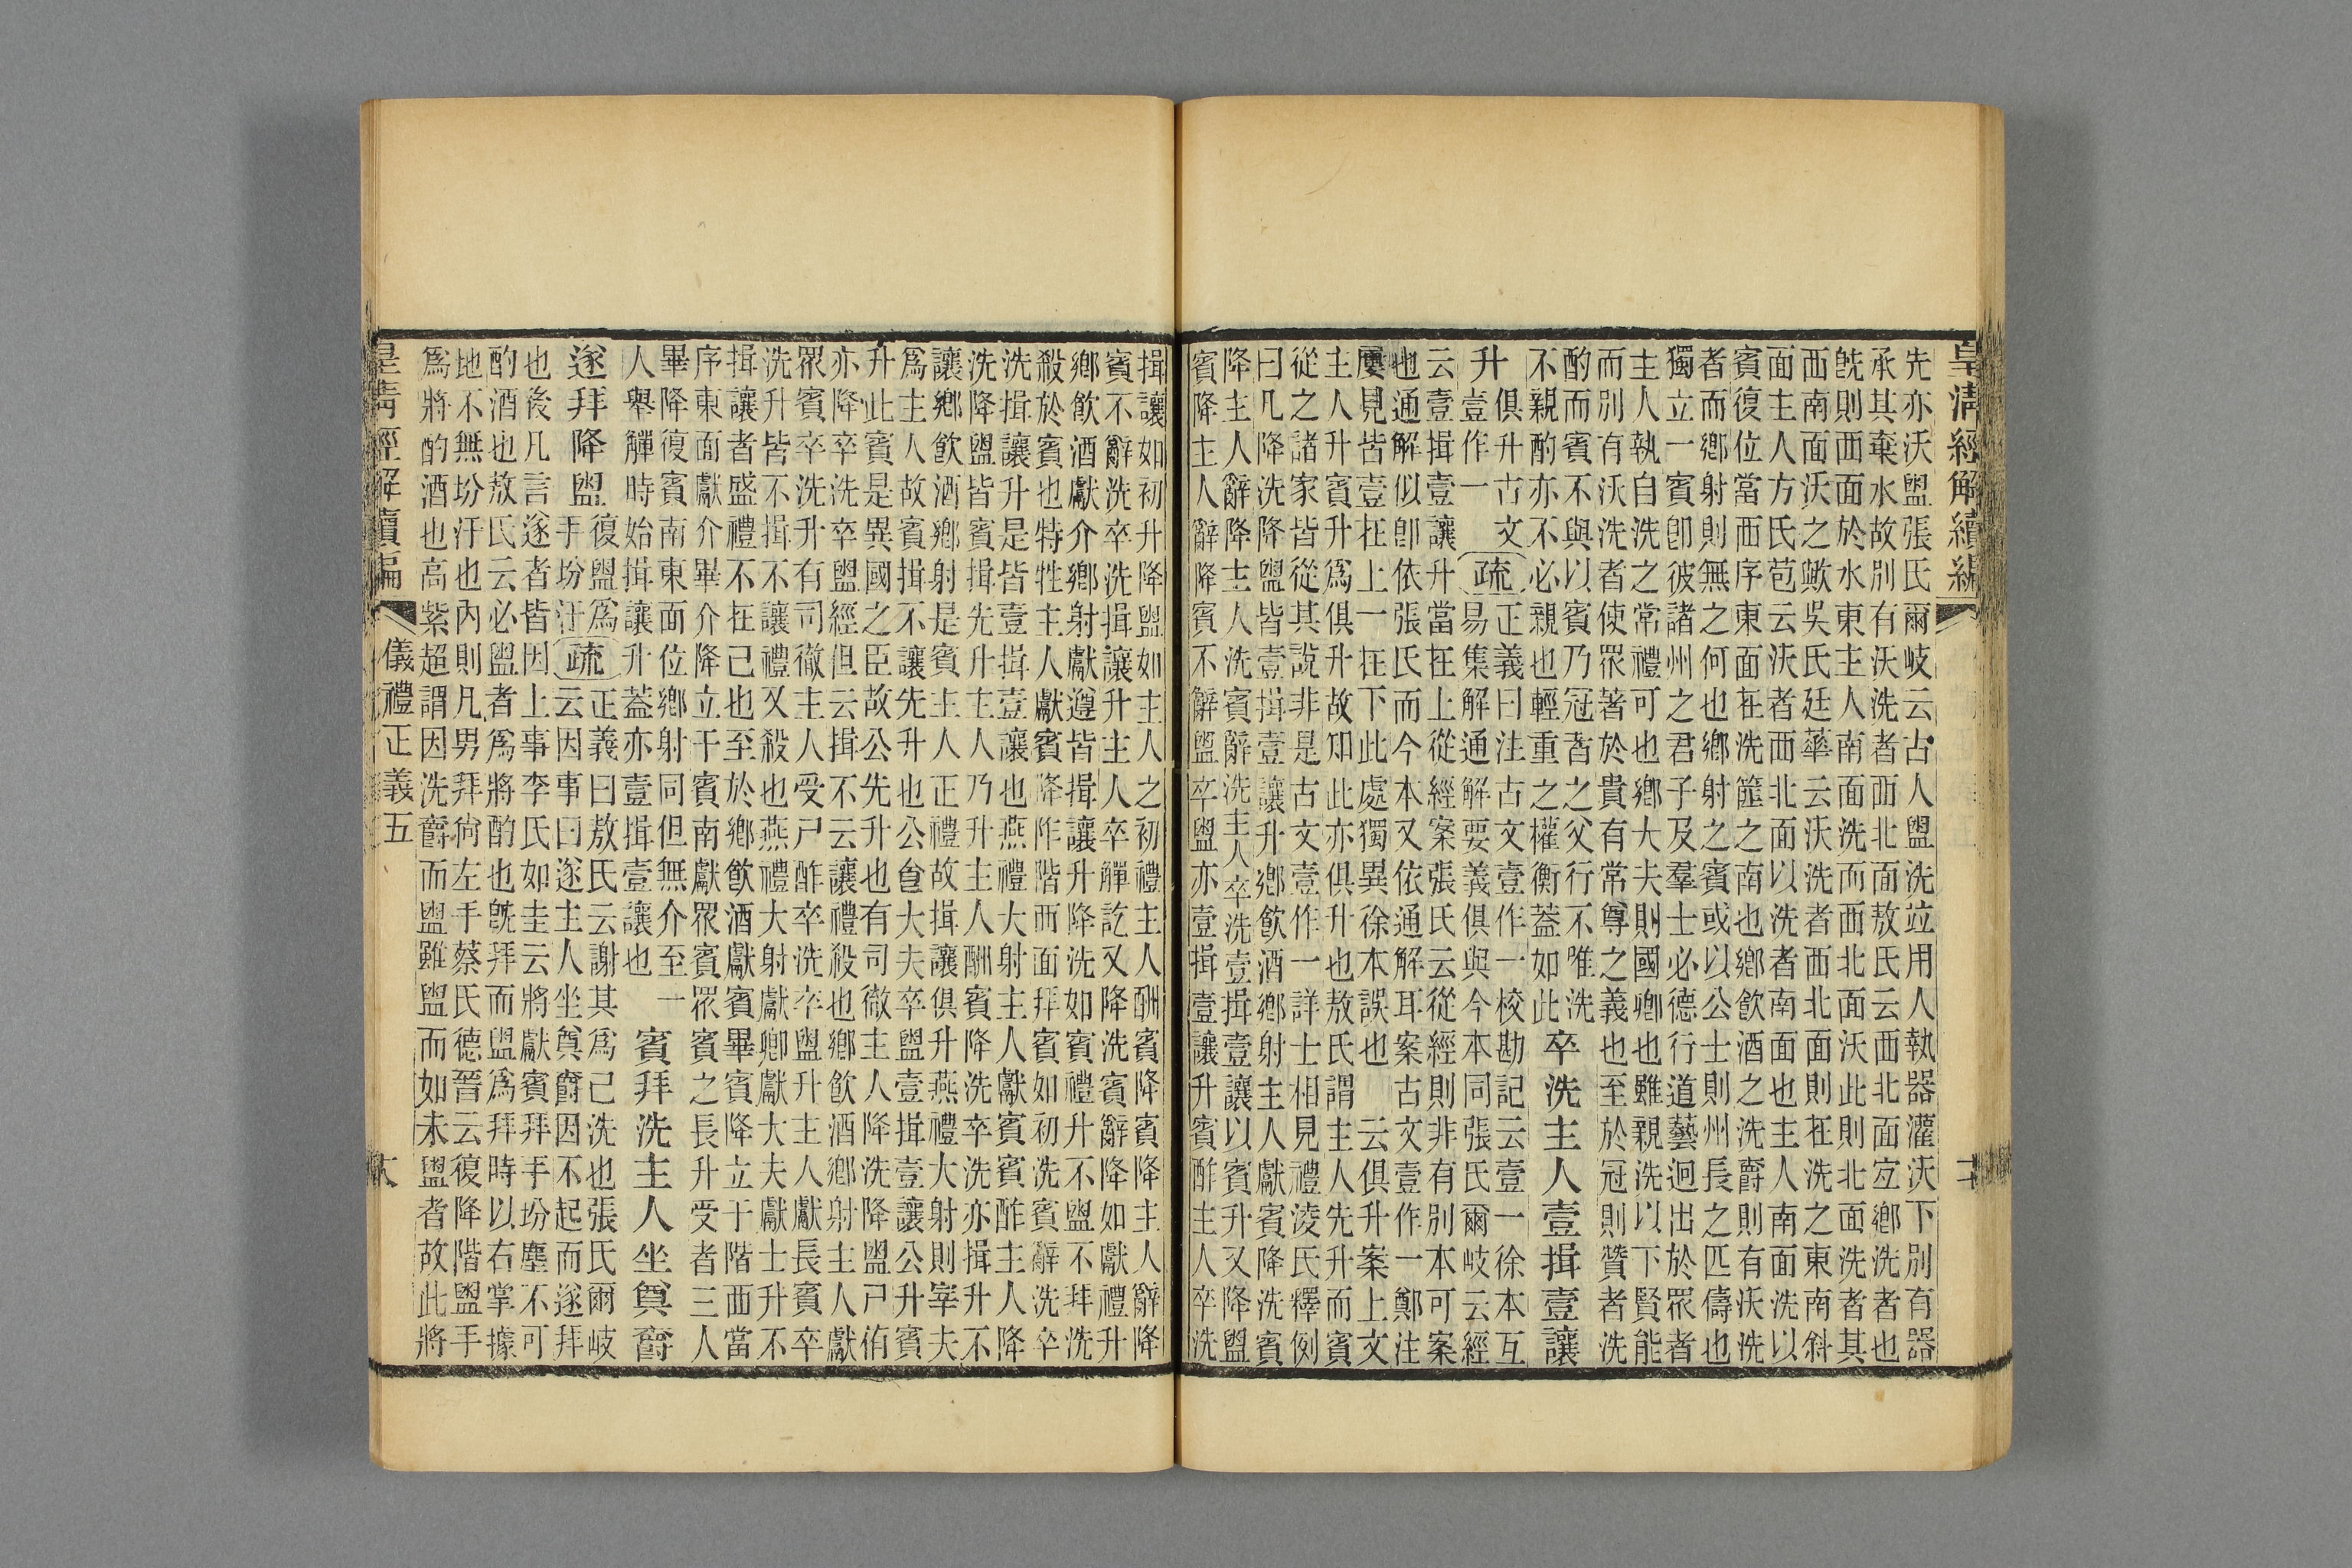 皇清經解續編
先亦沃盥張氏爾岐云古人盥洗竝用人執器灌沃下別有器
承其棄水故別有沃洗者西北面敖氏云西北面宐鄉洗者也
旣則西面於水東主人南面洗而西北面沃此則北面洗者其
西南面沃之歟吳氏廷華云沃洗者西北面則在洗之東南斜
面主人方氏苞云沃者西北面以洗者南面也主人南面洗以
賓復位當西序東面在洗篚之南也鄉飲酒之洗爵則有沃洗
者而鄉射則無之何也鄉射之賓或以公士則州長之匹儔也
獨立一賓卽彼諸州之君子及羣士必德行道藝迥出於眾者
主人執自洗之常禮可也鄉大夫則國卿也雖親洗以下賢能
而別有沃洗者使眾著於貴有常尊之義也至於冠則贊者洗
酌而賓不與以賓乃冠者之父行不唯洗
不親酌亦不必親也輕重之權衡蓋如此
卒洗主人壹揖壹讓
升
俱升古文
壹作一
疏
正義曰注古文壹作一校勘記云壹一徐本互
易集解通解要義俱與今本同張氏爾岐云經
云壹揖壹讓升當在上從經案張氏云從經則非有別本可案
也通解似卽依張氏而今本又依通解耳案古文壹作一鄭注
屢見皆壹在上一在下此處獨異徐本誤也 云俱升案上文
主人升賓升爲俱升故知此亦俱升也敖氏謂主人先升而賓
從之諸家皆從其說非是古文壹作一詳士相見禮淩氏釋例
曰凡降洗降盥皆壹揖壹讓升鄉飲酒鄉射主人獻賓降洗賓
降主人辭降主人洗賓辭洗主人卒洗壹揖壹讓以賓升又降盥
賓降主人辭降賓不辭盥卒盥亦壹揖壹讓升賓酢主人卒洗
揖讓如初升降盥如主人之初禮主人酬賓降賓降主人辭降
賓不辭洗卒洗揖讓升主人卒觶訖又降洗賓辭降如獻禮升
鄉飲酒獻介鄉射獻遵皆揖讓升降洗如賓禮升不盥不拜洗
殺於賓也特牲主人獻賓降阼階西面拜賓如初洗賓辭洗卒
洗揖讓升是皆壹揖壹讓也燕禮大射主人獻賓賓酢主人降
洗降盥皆賓揖先升主人乃升主人酬賓降洗卒洗亦揖升不
讓鄉飲酒鄉射是賓主人正禮故揖讓俱升燕禮大射則宰夫
爲主人故賓揖不讓先升也公食大夫卒盥壹揖壹讓公升賓
升此賓是異國之臣故公先升也有司徹主人降洗降盥尸侑
亦降卒洗卒盥經但云揖不云讓禮殺也鄉飲酒鄉射主人獻
眾賓卒洗升有司徹主人受尸酢卒洗卒盥升主人獻長賓卒
洗升皆不揖不讓禮又殺也燕禮大射獻卿獻大夫獻士升不
揖讓者盛禮不在己也至於鄉飲酒獻賓畢賓降立于階西當
序東面獻介畢介降立于賓南獻眾賓眾賓之長升受者三人
畢降復賓南東面位鄉射同但無介至一
人舉觶時始揖讓升蓋亦壹揖壹讓也
賓拜洗主人坐奠爵
遂拜降盥
復盥爲
手坋汙
疏
正義曰敖氏云謝其爲己洗也張氏爾岐
云因事曰遂主人坐奠爵因不起而遂拜
也後凡言遂者皆因上事李氏如圭云將獻賓拜手坋塵不可
酌酒也敖氏云必盥者爲將酌也旣拜而盥爲拜時以右掌據
地不無坋汙也內則凡男拜尙左手蔡氏德晉云復降階盥手
爲將酌酒也高紫超謂因洗爵而盥雖盥而如未盥者故此將
皇清經解續編
儀禮正義五